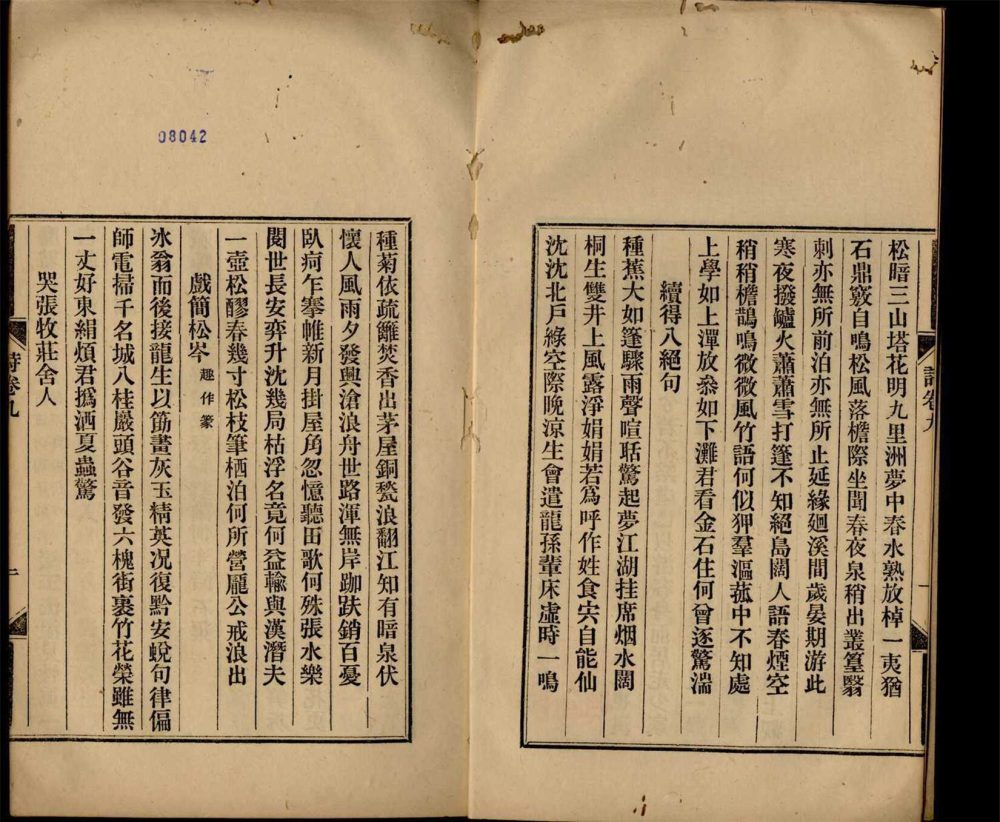 松暗三山塔花明九里洲夢中春水熟放棹一夷猶
石鼎竅自鳴松風落檐際坐聞春夜泉稍出叢篁翳
刺亦無所前泊亦無所止延緣廻溪間歲晏期游此
寒夜撥鑪火蕭蕭雪打篷不知絕島闊人語春煙空
稍稍檐鵲鳴微微風竹語何似狎羣漚菰中不知處
上學如上潬放叅如下灘君看金石住何曾逐驚湍
續得八絕句
種蕉大如篷驟雨聲喧聒驚起夢江湖挂席烟水闊
桐生雙井上風露淨娟娟若爲呼作姓食宍自能仙
沈沈北戶綠空際晚涼生會遣龍孫輩床虛時一鳴
詩卷九
一
種菊依疏籬焚香出茅屋銅甃浪翻江知有暗泉伏
懷人風雨夕發興滄浪舟世路渾無岸跏趺銷百憂
臥疴乍搴帷新月掛屋角忽憶聽田歌何殊張水樂
閱世長安弈升沈幾局枯浮名竟何益輸與漢潛夫
一壺松醪春幾寸松枝筆栖泊何所營龐公戒浪出
戲簡松岑 趣作篆
冰翁而後接龍生以筋畫灰玉精英况復黔安蛻句律偏
師電掃千名城八桂巖頭谷音發六槐街裏竹花榮雖無
一丈好東絹煩君撝洒夏蟲驚
哭張牧莊舍人
詩卷九
一
08042